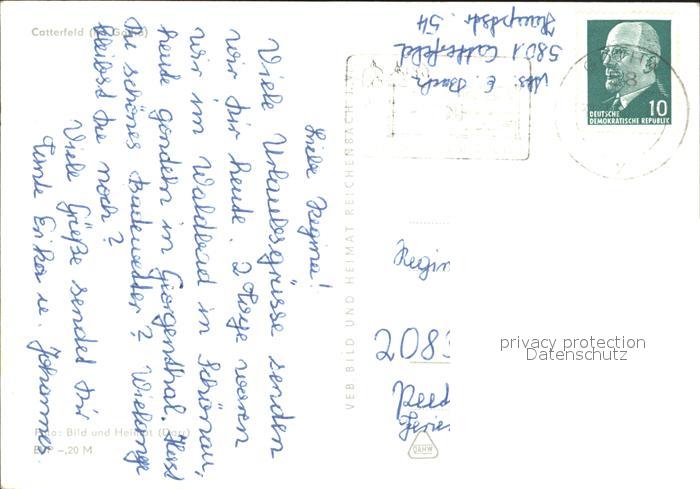 Catterfeld
Liebe Regina!
Viele Urlaubsgrüsse senden
wir Dir heute. 2 Tage waren
wir im Waldbad in Schönau,
heute gondeln in Georgenthal. Hast
Du schönes Badewetter? Wielange
bleibst Du noch?
Viele Grüße sendet Dir
Tante Erika u. Johannes.
Foto: Bild und Heimat
–,20 M
VEB BILD UND HEIMAT REICHENBACH I. V.
Abs. E. Bach
5801 Catterfeld
Hauptstr. 54
DEUTSCHE
DEMOKRATISCHE REPUBLIK
10
Regin
208
privacy protection
Datenschutz